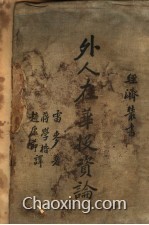 經濟叢書
外人在華投資論
雷麥著
蔣學楷
趙康節譯
Chaoxing.com